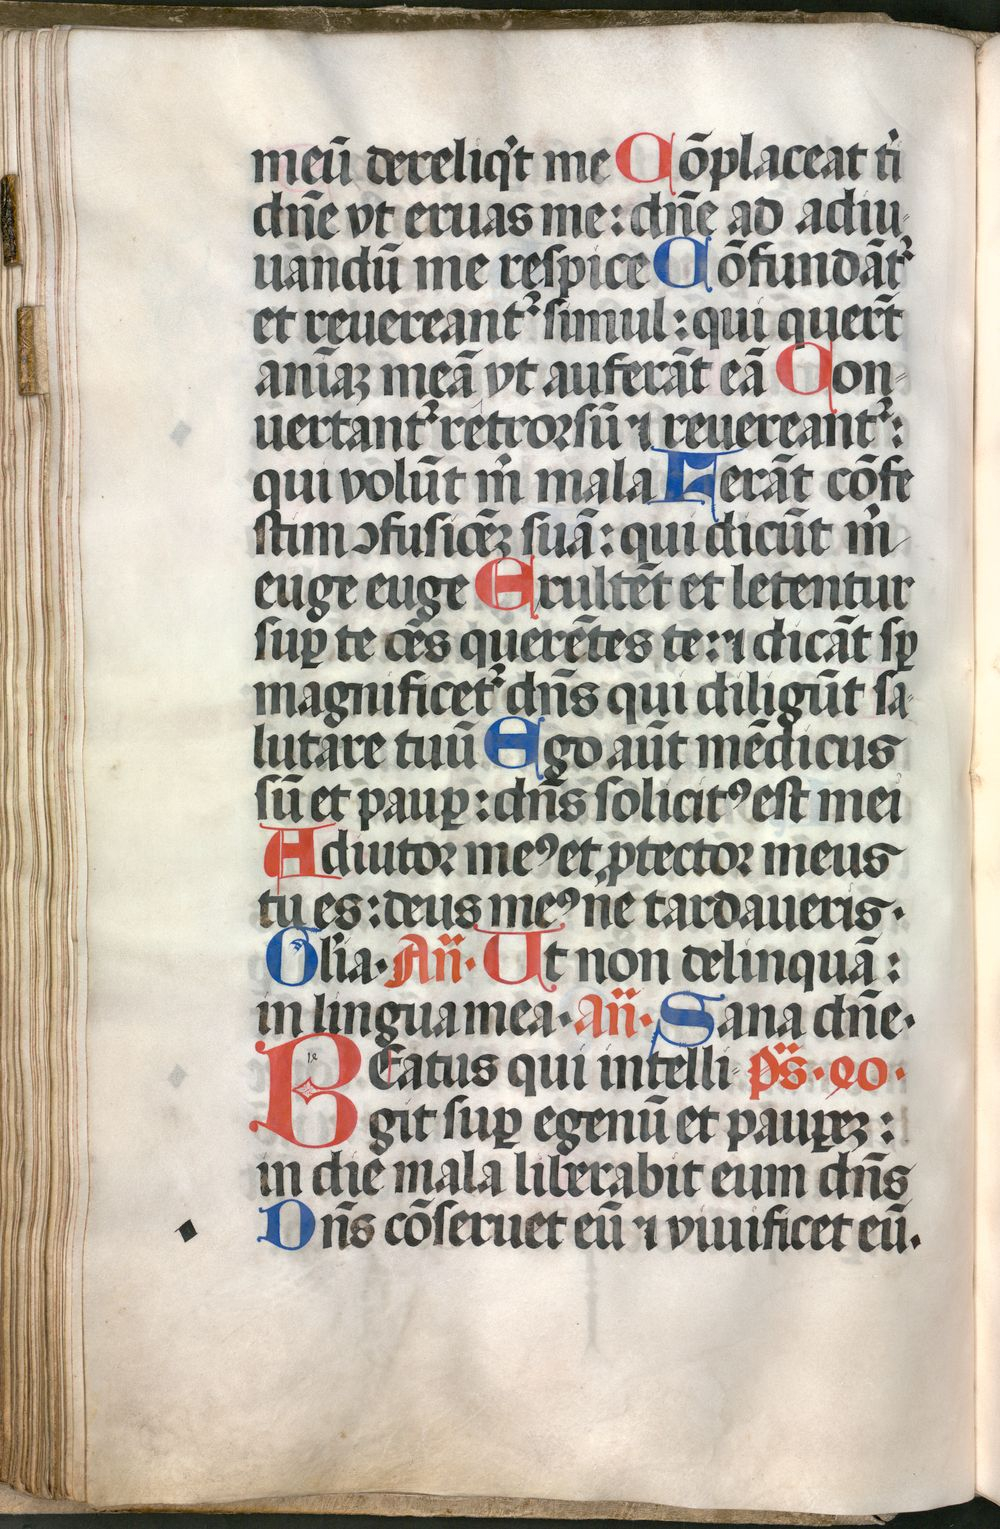 meū dereliq̇t me Cōplaceat ti̇
dn̄e vt eruas me: dn̄e ad adiu-
uandū me respice Cōfundāt᷑
et reuereant᷑ simul: qui quer̄t
anīaꝫ meā vt auferāt eā Con-
uertant᷑ retrorsū ⁊ reuereant᷑:
qui volūt m̄ mala Ferāt cōfe
stim ↄfusiōeꝫ suā: qui dicūt m̄
euge euge Exultēt et letentur
suꝑ te oēs querētes te: ⁊ dicāt sꝑ
magnificet᷑ dn̄s qui diligūt sa-
lutare tuū Ego aūt mēdicus
sū et pauꝑ: dn̄s solicitꝰ est mei
Adiutor meꝰ et ꝓtector meus
tu es: deus meꝰ ne tardaueris.
Gl̄ia. An̄. Ut non delinquā:
in lingua mea. an̄. Sana dn̄e.
BEatus qui intelli- p̄s. 40.
git suꝑ egenū et pauꝑeꝫ:
in die mala liberabit eum dn̄s
Dn̄s cōseruet eū ⁊ viuificet eū.